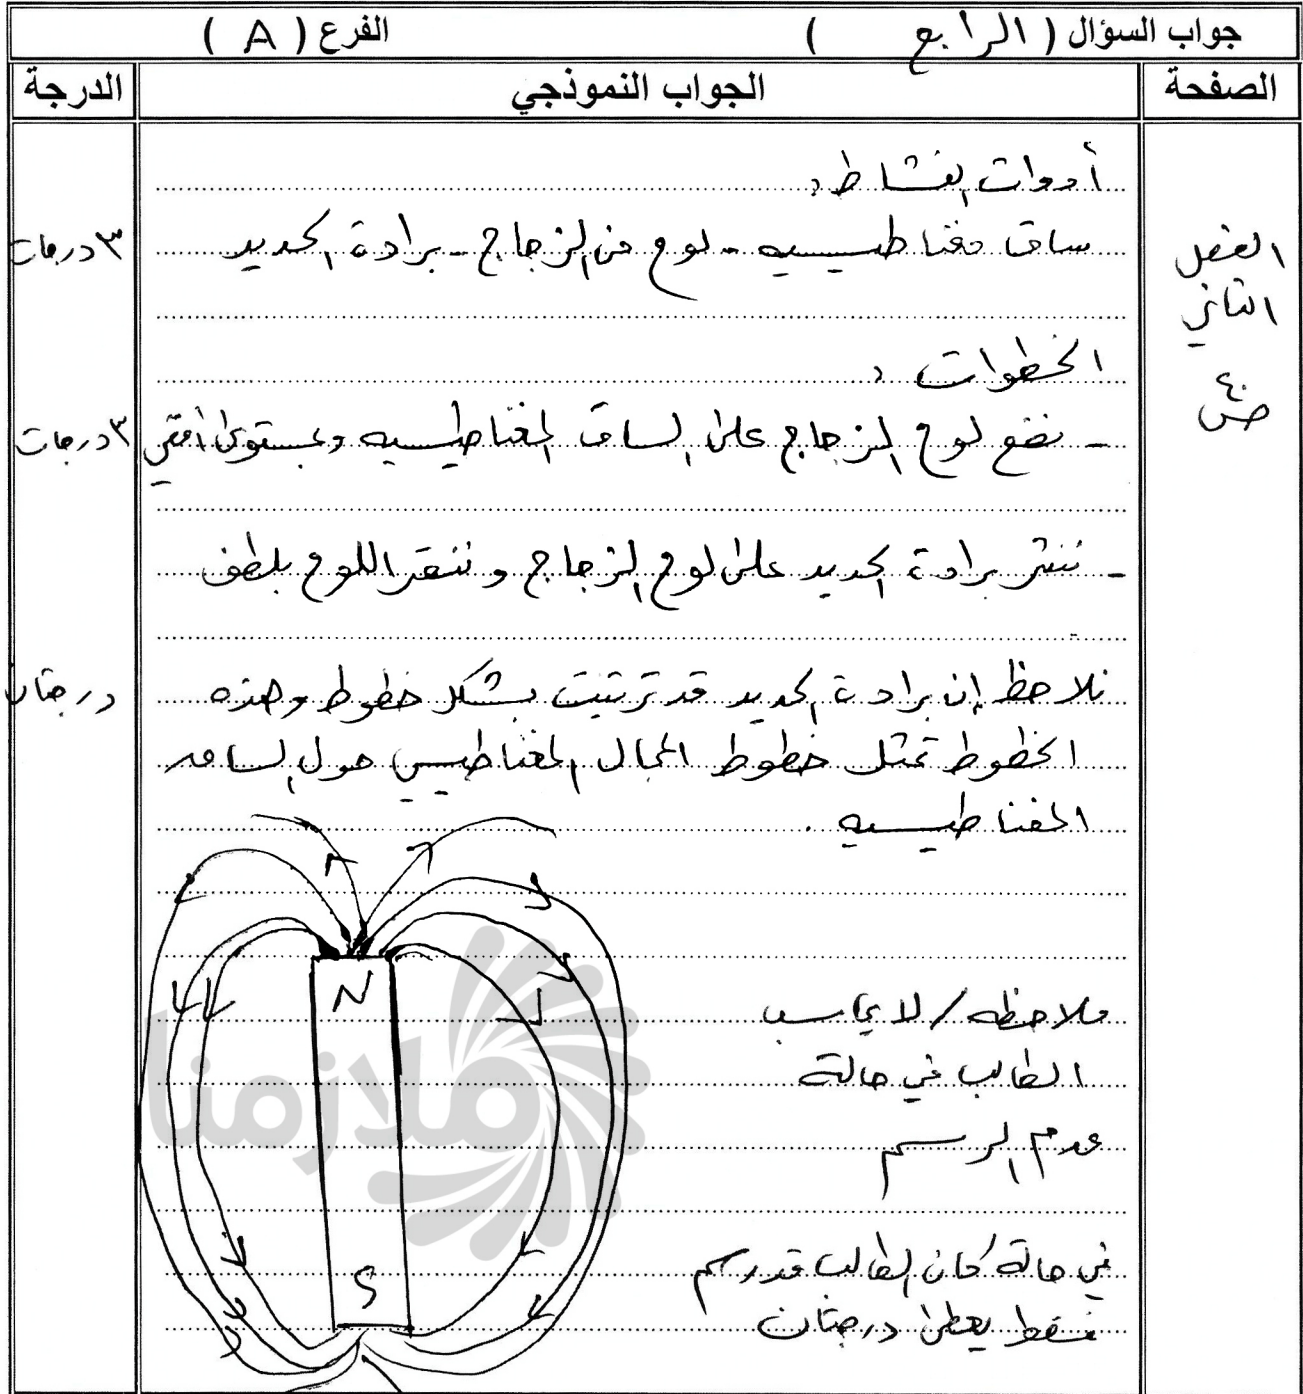 جواب السؤال ( الرابع ) الفرع ( A )
الصفحة الجواب النموذجي الدرجة
أدوات النشاط:
ساق مغناطيسيه - لوح من الزجاج - برادة الحديد ٣ درجات
الفصل
الثاني
ص ٤٠
الخطوات :
- نضع لوح الزجاج على الساق المغناطيسيه وبمستوى أفقي ٣ درجات
- ننثر برادة الحديد على لوح الزجاج و ننقر اللوح بلطف
نلاحظ إن برادة الحديد قد ترتبت بشكل خطوط وهذه درجتان
الخطوط تمثل خطوط المجال المغناطيسي حول الساق
المغناطيسيه .
N
ملاحظه / لا يحاسب
الطالب في حالة
عدم الرسم
ملازمنا
في حالة كان الطالب قد رسم
S
فقط يعطى درجتان